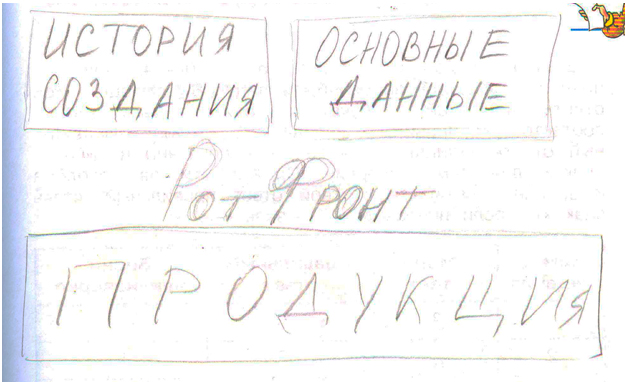 ИСТОРИЯ
СОЗДАНИЯ
ОСНОВНЫЕ
ДАННЫЕ
РОТ ФРОНТ
ПРОДУКЦИЯ